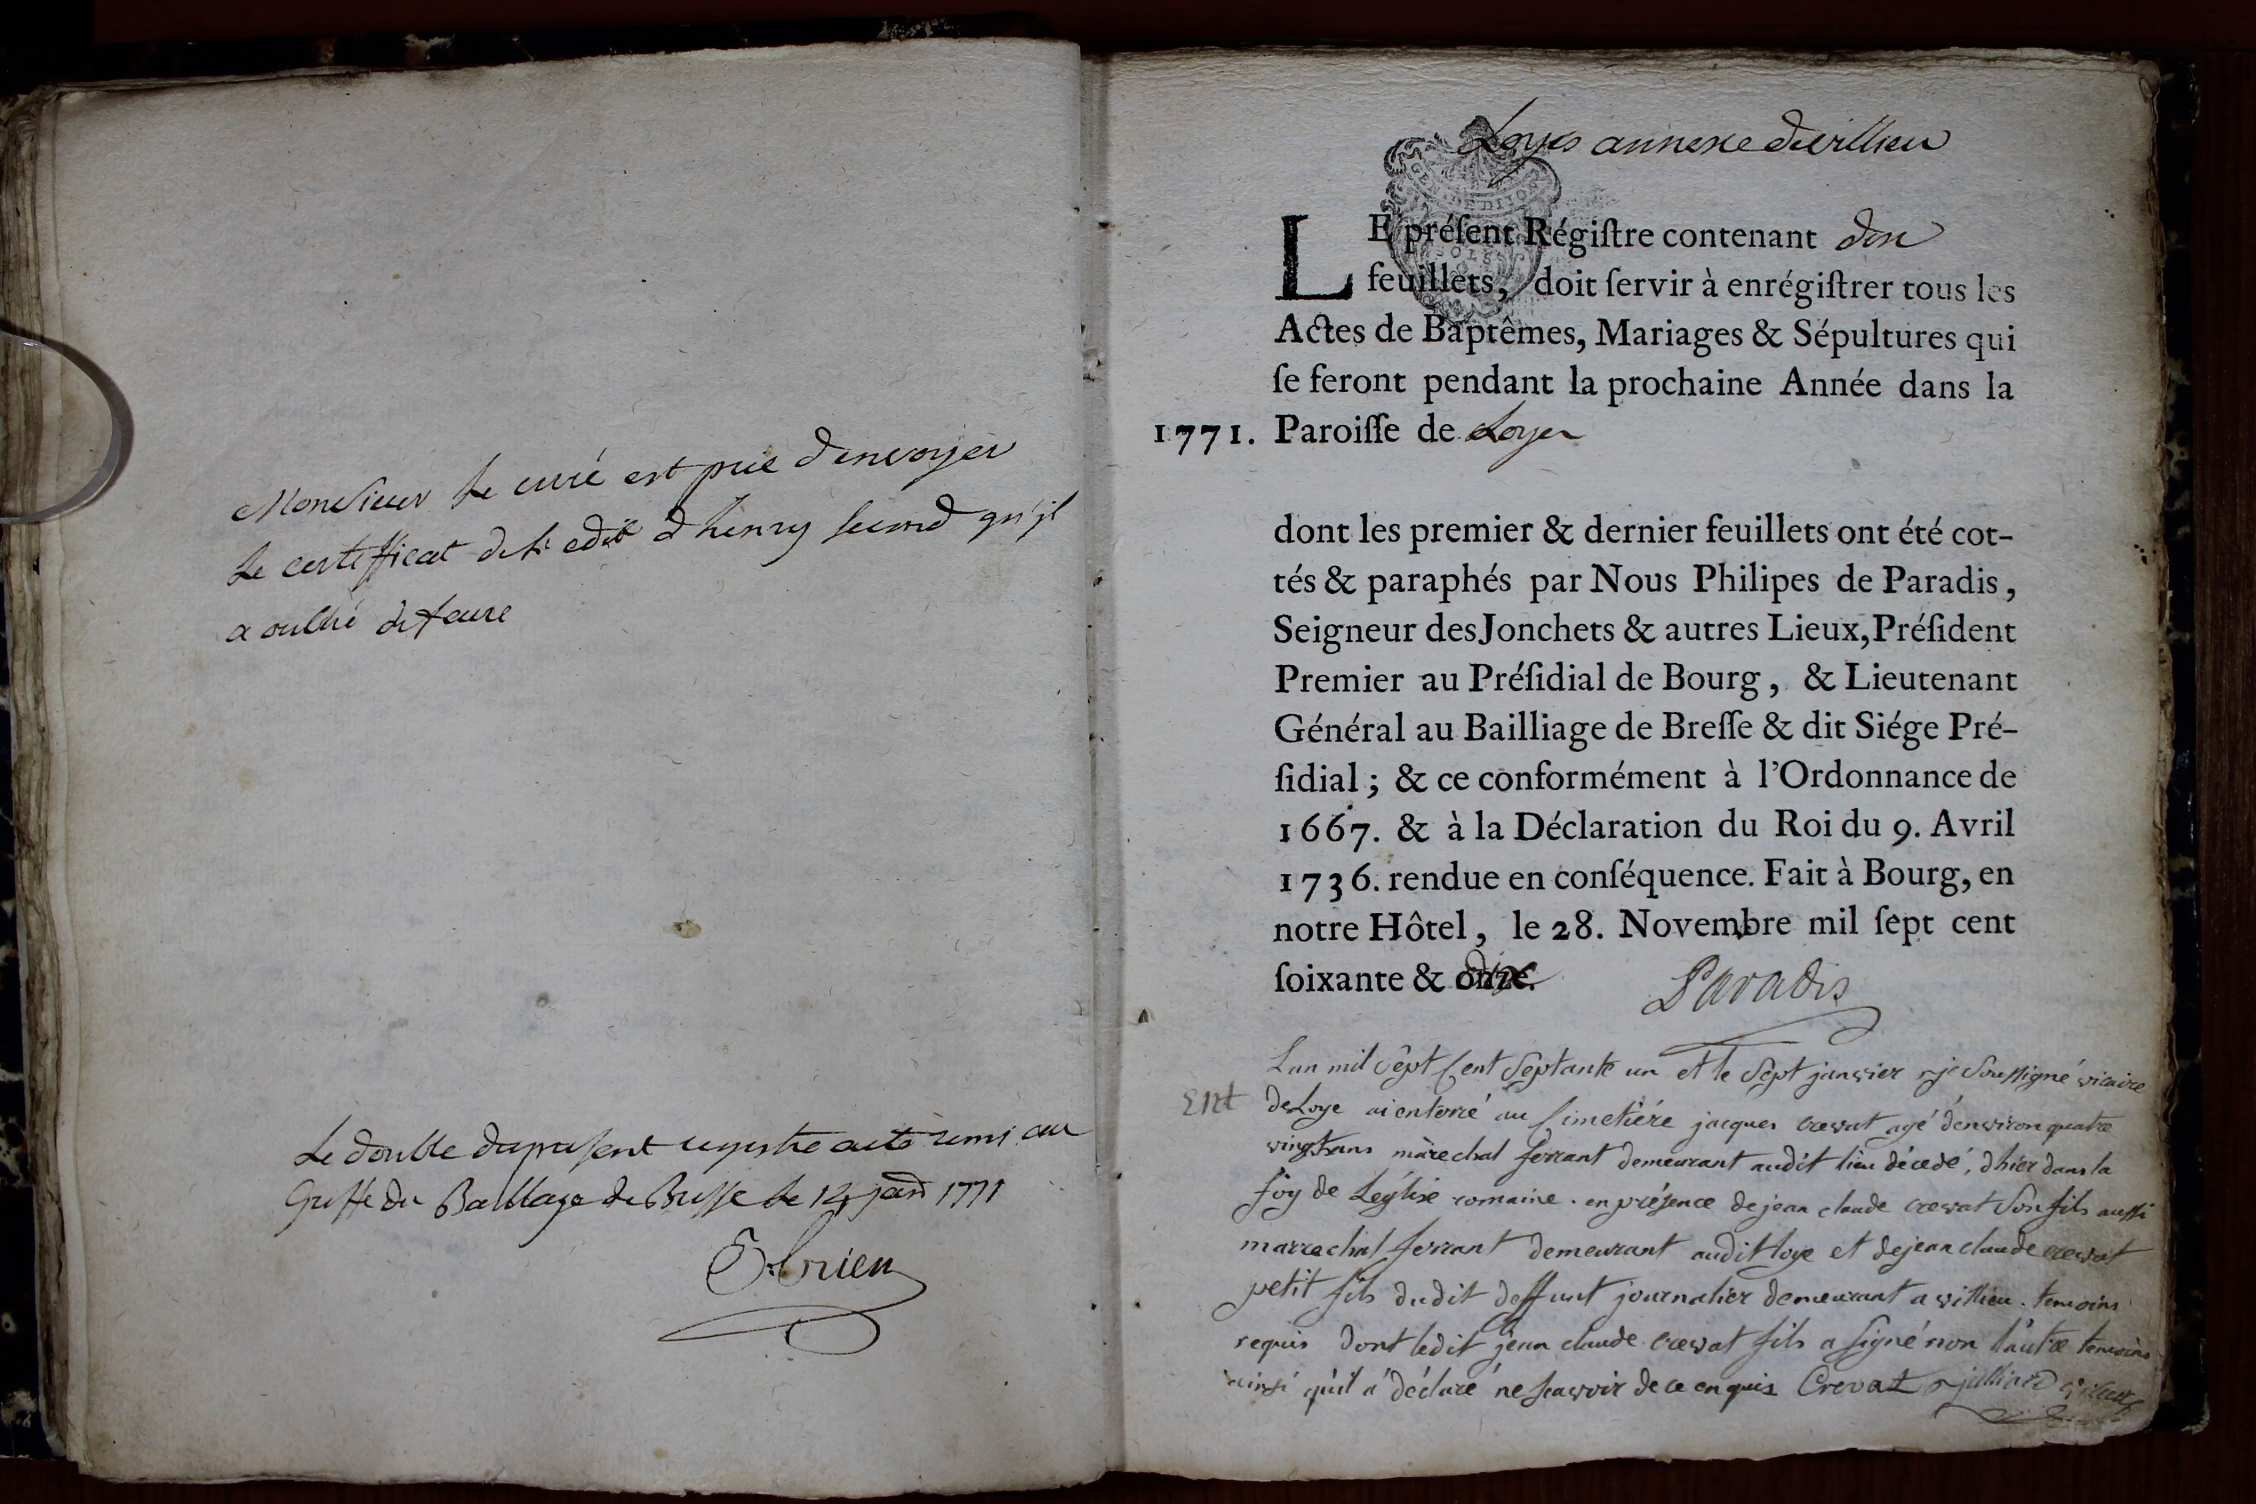 Monsieur le curé est prié denvoyer
le certifficat de l'edit d henry second qu'jl
a oublié de faire
Le double du present registre a eté remi au
Greffe du Balliage de Bresse le 14 janr 1771
Loyes annexe de villieu
LE préſent Régiſtre contenant dix
feuillets, doit ſervir à enrégiſtrer tous les
Actes de Baptêmes, Mariages & Sépultures qui
ſe feront pendant la prochaine Année dans la
1771. Paroiſſe de Loyes
dont les premier & dernier feuillets ont été cot-
tés & paraphés par Nous Philipes de Paradis,
Seigneur des Jonchets & autres Lieux, Préſident
Premier au Préſidial de Bourg, & Lieutenant
Général au Bailliage de Breſſe & dit Siége Pré-
ſidial; & ce conformément à l'Ordonnance de
1667. & à la Déclaration du Roi du 9. Avril
1736. rendue en conſéquence. Fait à Bourg, en
notre Hôtel, le 28. Novembre mil ſept cent
ſoixante & onze. dix
Paradis
Lan mil sêpt cent septante un et le sêpt janvier je soussigné vicaire
Ent de Loye ai enterré au cimetiére jacques crevat agé d'environ quatre
vingt ans marechal ferrant demeurant audit lieu décedé, d hier dans la
foy de Leglise romaine. en présence de jean claude crevat son fils aussi
marrechal ferrant demeurant audit loye et de jean claude crevat
petit fils dudit deffunt journalier demeurant a villieu. temoins
requis dont ledit jean claude crevat fils a signé non l'autre temoins
ainsi qu'il a déclaré ne scavoir de ce enquis Crevat julliard vicaire